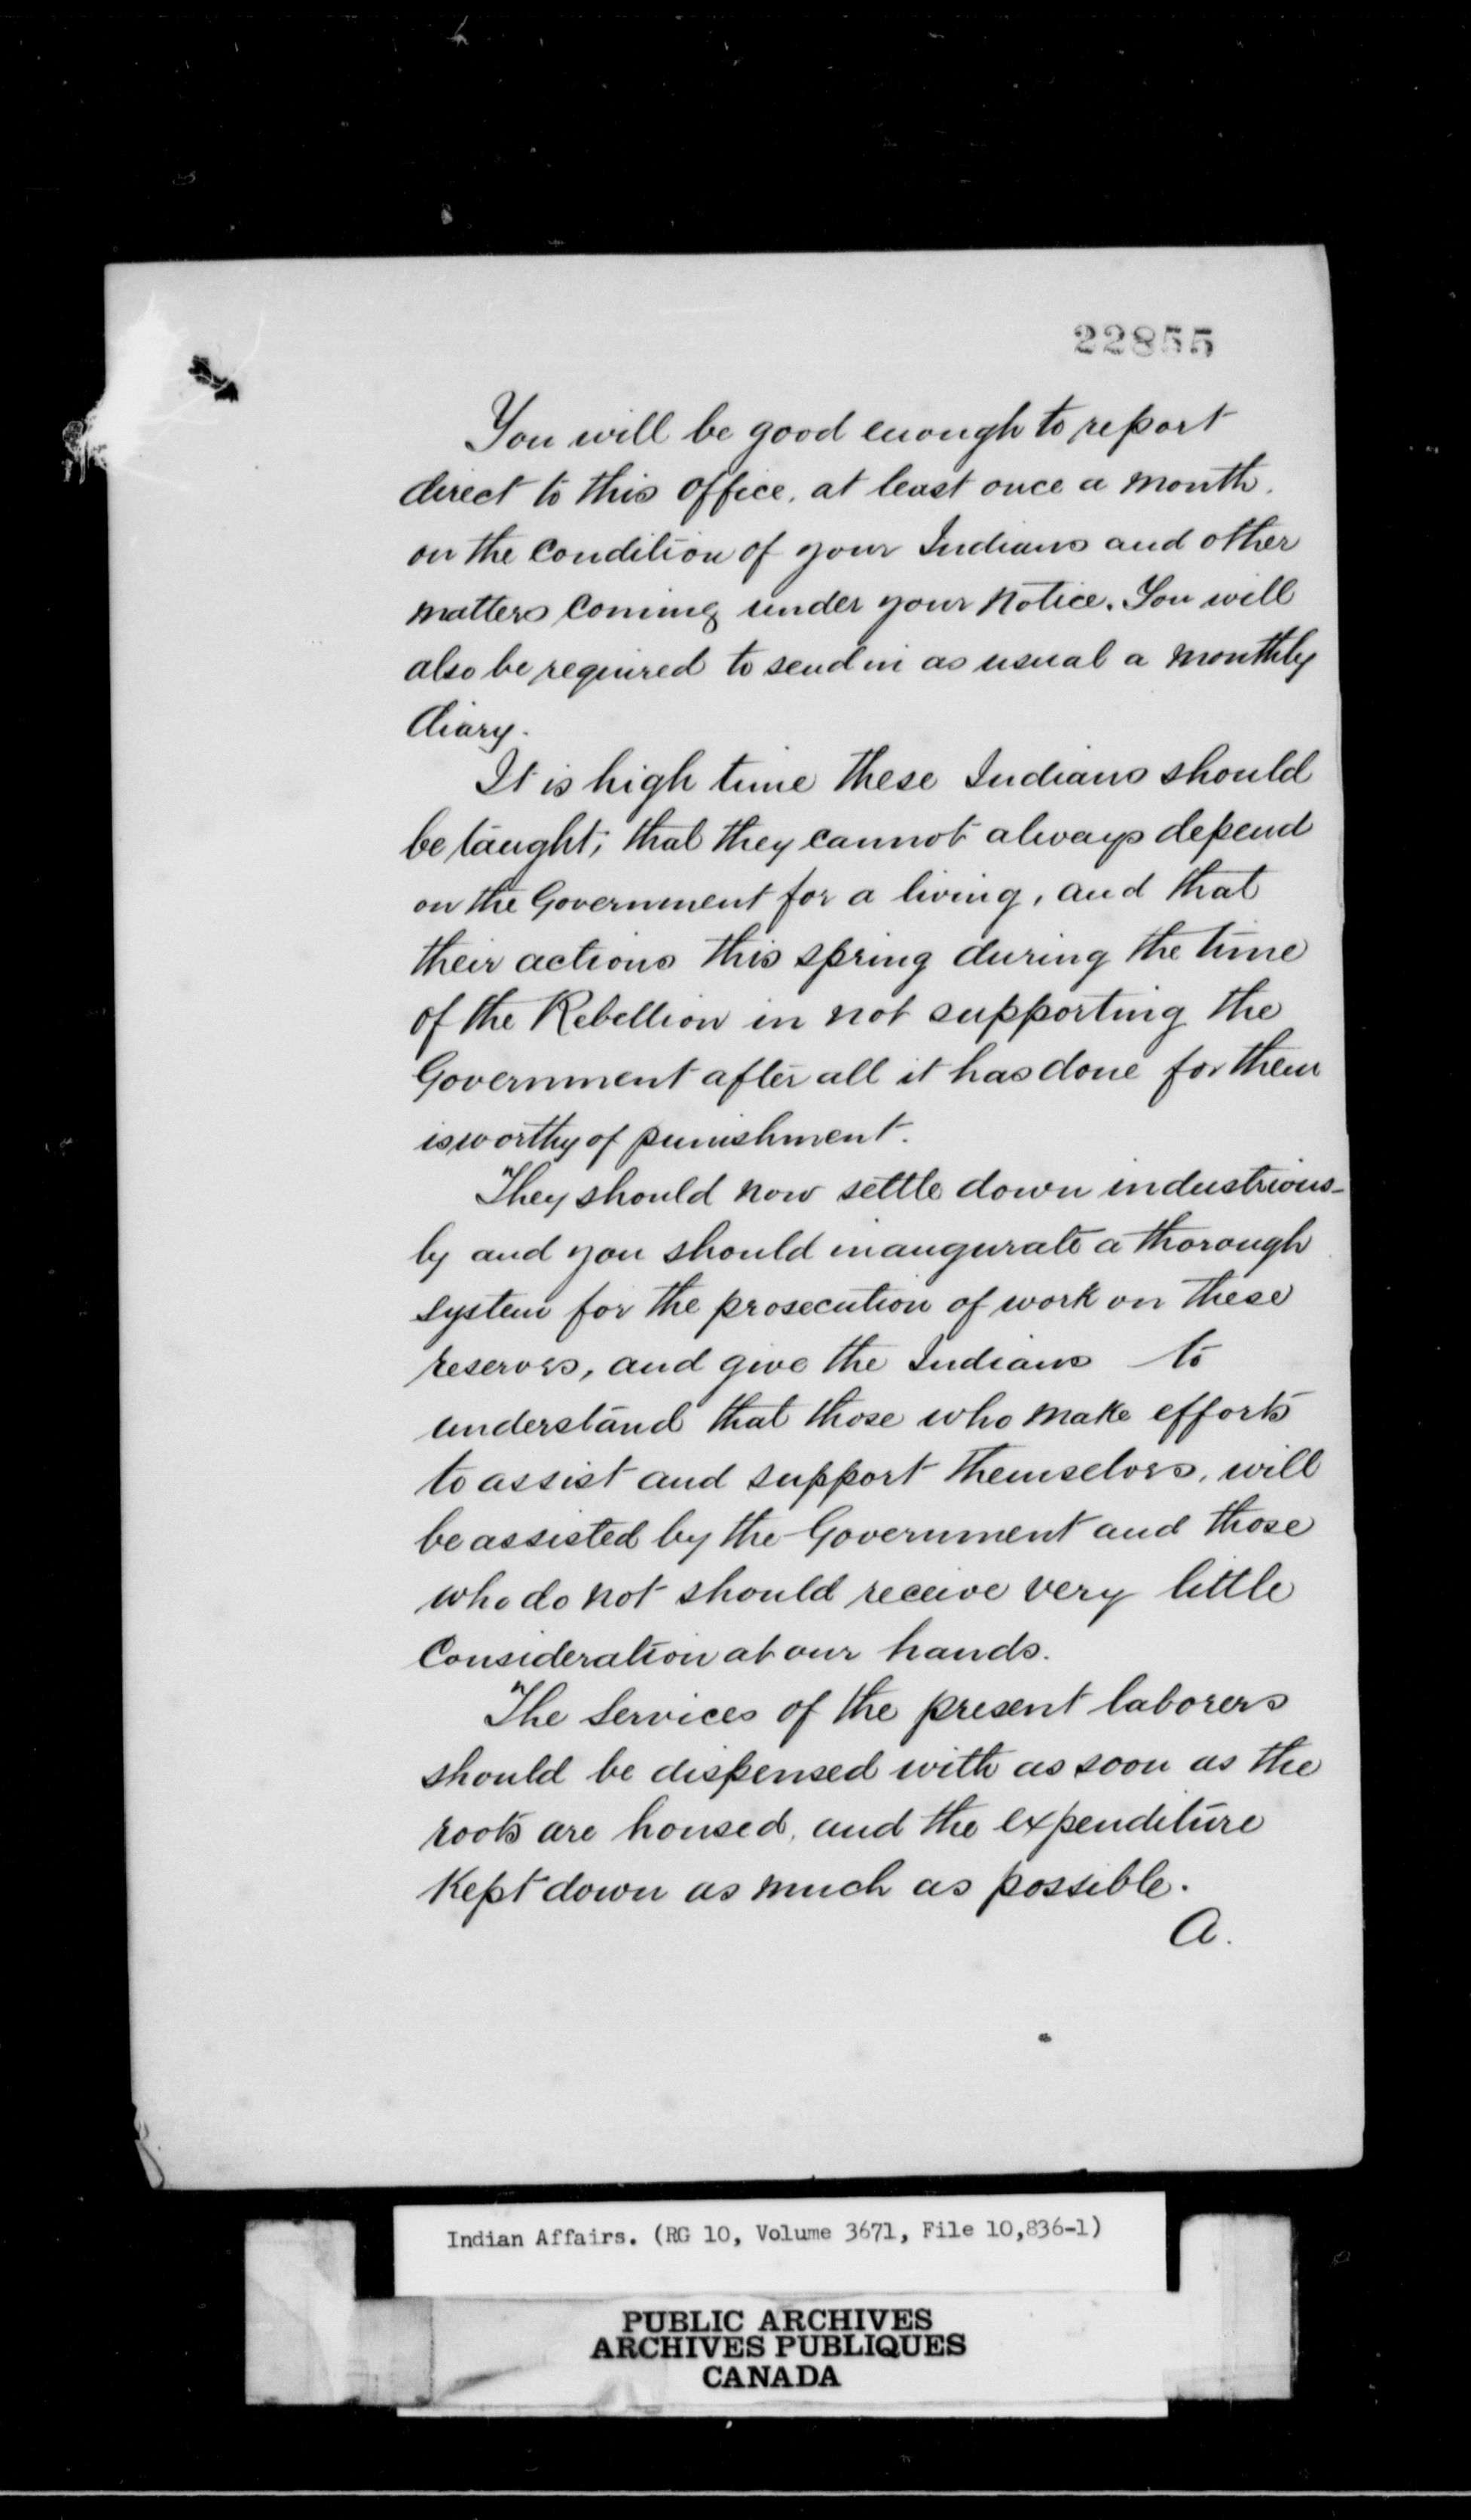 22855
You will be good enough to report
direct to this office, at least once a month,
on the Condition of your Indians and other
matters Coming under your Notice. You will
also be required to send in as usual a monthly
diary.
It is high time these Indians should
be taught; that they cannot always depend
on the Government for a living, and that
their actions this spring during the time
of the Rebellion in not supporting the
Government after all it has done for them
is worthy of punishment.
They should now settle down industrious-
ly and you should inaugurate a thorough
system for the prosecution of work on these
reserves, and give the Indians to
understand that those who make efforts
to assist and support themselves, will
be assisted by the Government and those
who do not should receive very little
Consideration at our hands.
The Services of the present laborers
should be dispensed with as soon as the
roots are housed, and the expenditure
Kept down as much as possible.
A.
Indian Affairs. (RG 10, Volume 3671, File 10,836-1)
PUBLIC ARCHIVES
ARCHIVES PUBLIQUES
CANADA